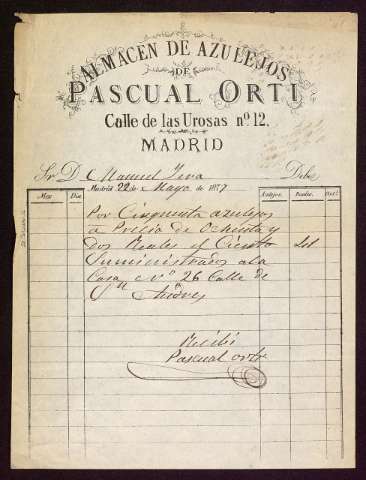 ALMACEN DE AZULEJOS
DE
PASCUAL ORTI
Calle de las Urosas nº 12.
MADRID
Sr. D. Manuel Debe
Madrid 22 de Mayo de 1877
Mes Dia Reales
Por Cinquenta azulejos
a Precio de Ochenta y
Dos Reales el Ciento
Suministrados a la
Casa nº 26 Calle de
Sn Andres
Recibi
Pascual Orti